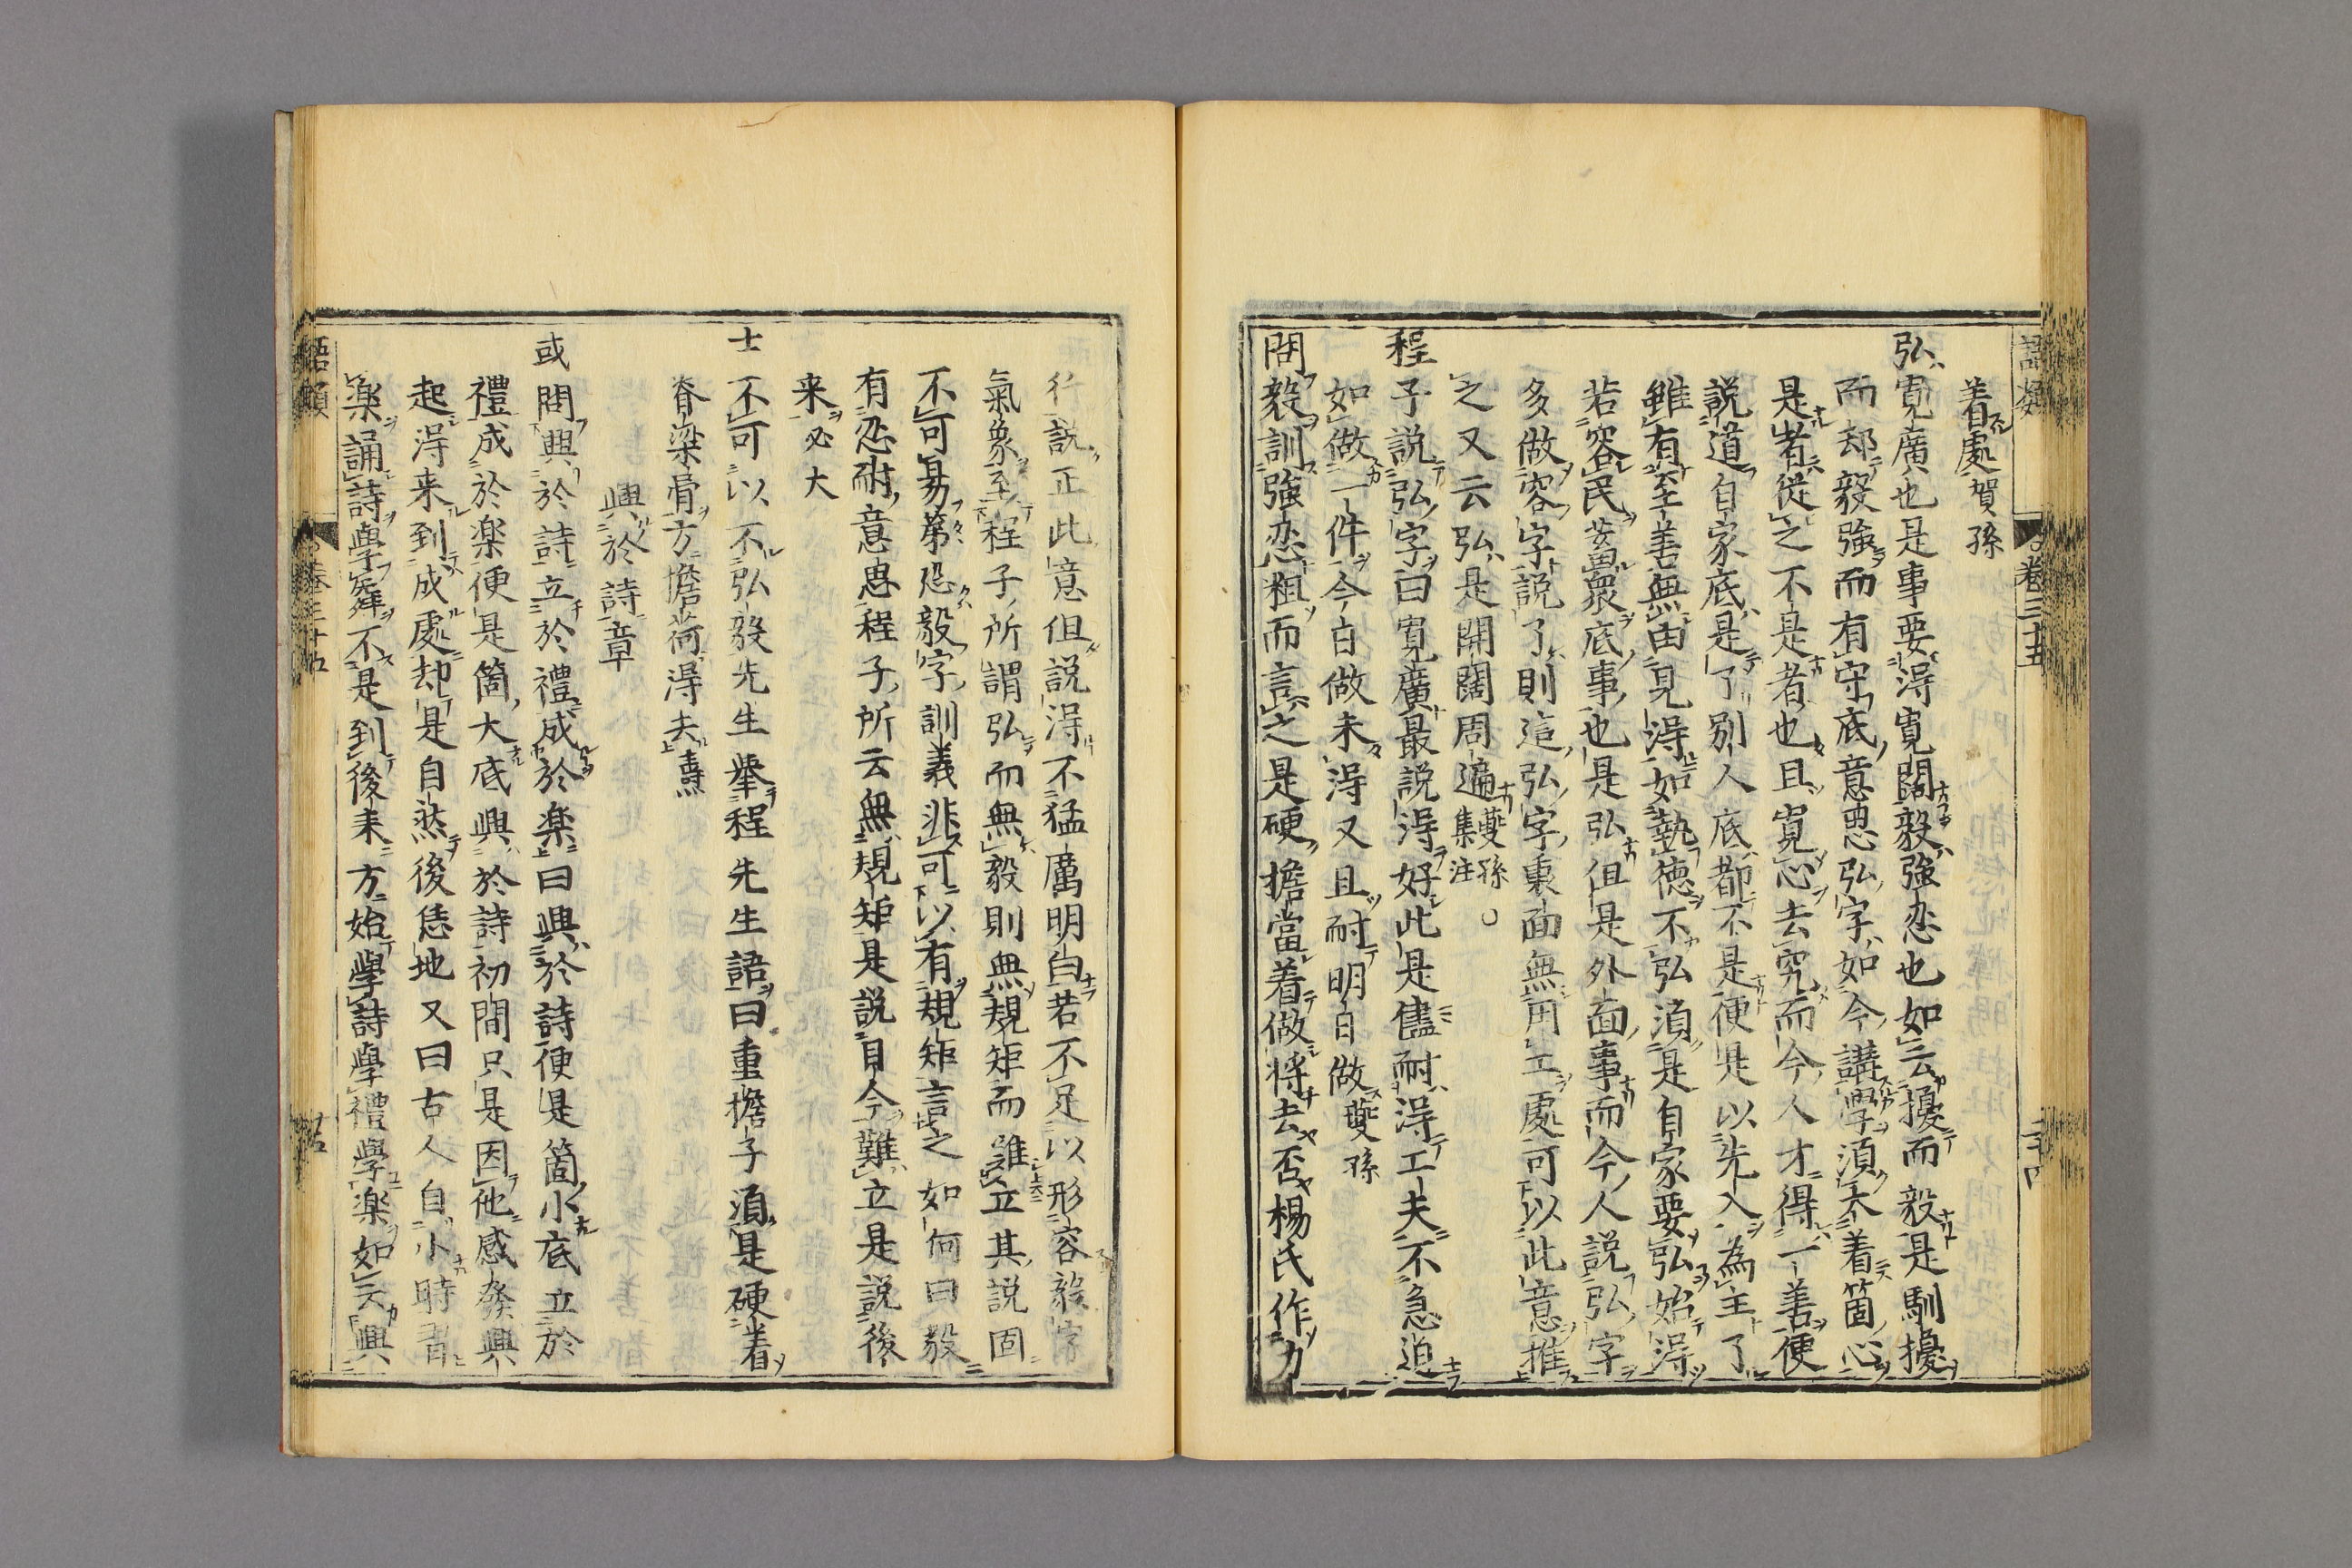 語類
卷三十五
着處賀孫
弘寬廣也是事要得寬闊毅強忍也如云擾而毅是馴擾
而却毅強而有守底意思弘字如今講學須大着箇心
是者從之不是者也且寬心去究而今人才得一善便
説道自家底是了別人底都不是便是以先入為主了
雖有至善無由見得如執德不弘須是自家要弘始得
若容民畜衆底事也是弘但是外面事而今人説弘字
多做容字説了則這弘字裏面無用工處可以此意推
之又云弘是開闊周遍夔孫集注○
程子説弘字曰寬廣最説得好此是儘耐得工夫不急迫
如做一件今日做未得又且耐明日做夔孫
問毅訓強忍粗而言之是硬擔當着做將去否楊氏作力
行説正此意但説得不猛厲明白若不足以形容毅字
氣象至程子所謂弘而無毅則無規矩而難立其説固
不可易第恐毅字訓義非可以有規矩言之如何曰毅
有忍耐意思程子所云無規矩是説目今難立是説後
来必大
士不可以不弘毅先生舉程先生語曰重擔子須是硬着
脊梁骨方擔荷得去燾
興於詩章
或問興於詩立於禮成於楽曰興於詩便是箇小底立於
禮成於楽便是箇大底興於詩初間只是因他感發興
起得来到成處却是自然後恁地又曰古人自小時習
楽誦詩學舞不是到後来方始學詩學禮學楽如云興
語類